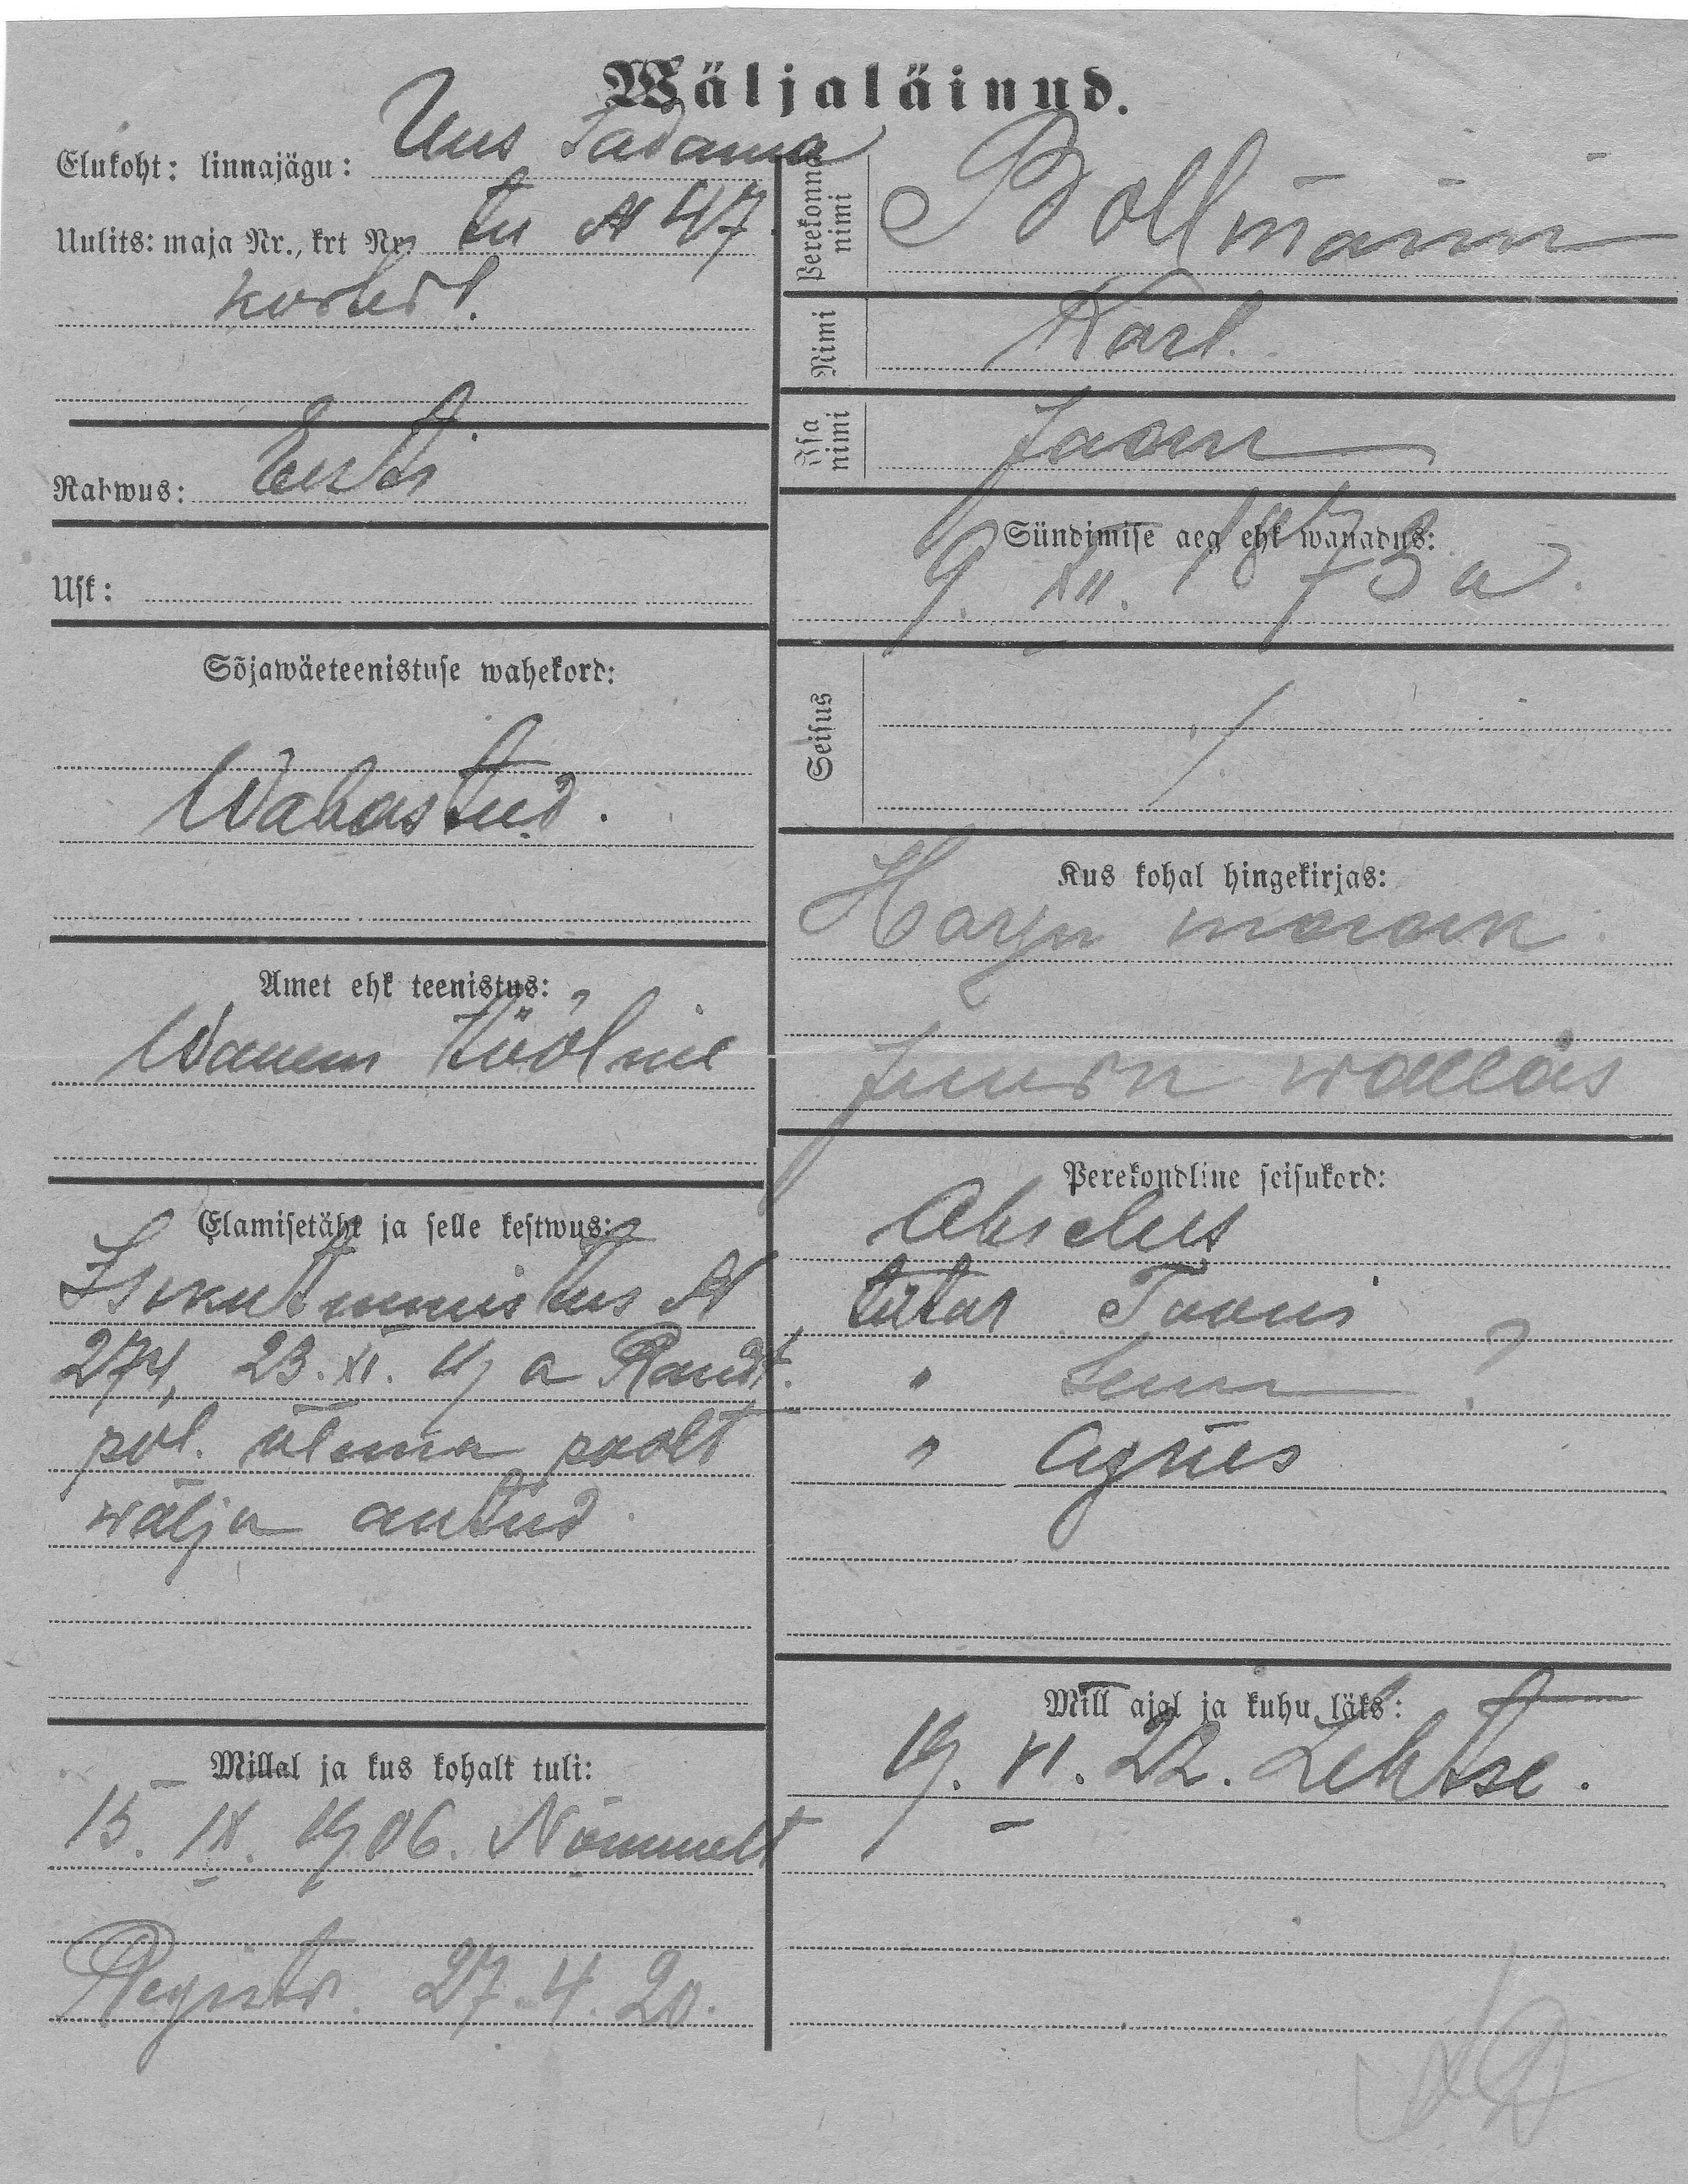 Wäljaläinud.
Elukoht: linnajägu: Uus Sadama
Uulits: maja Nr., krt Nr. tn № 47.
Rahwus: Eesti
Usk:
Sõjawäeteenistuse wahekord:
Wabastud.
Amet ehk teenistus:
Wanem
Elamisetäht ja selle kestwus:
Isikutunnistus №
274, 23. XI. 19 a Randt.
pol. ülema poolt
wälja antud.
Millal ja kus kohalt tuli:
15. IX. 1906. Nõmmelt
Registr. 27.4.20.
Perekonna nimi
Bollmann
Nimi
Karl.
Isa nimi
Jaan
Sündimise aeg ehk wanadus:
9. XII. 1873 a.
Seisus
Kus kohal hingekirjas:
Harju maak.
Juuru wallas
Perekondline seisukord:
Abielus
tütar
" Leena ?
" Agnes
Mill ajal ja kuhu läks:
19. VI. 22. Lehtse.